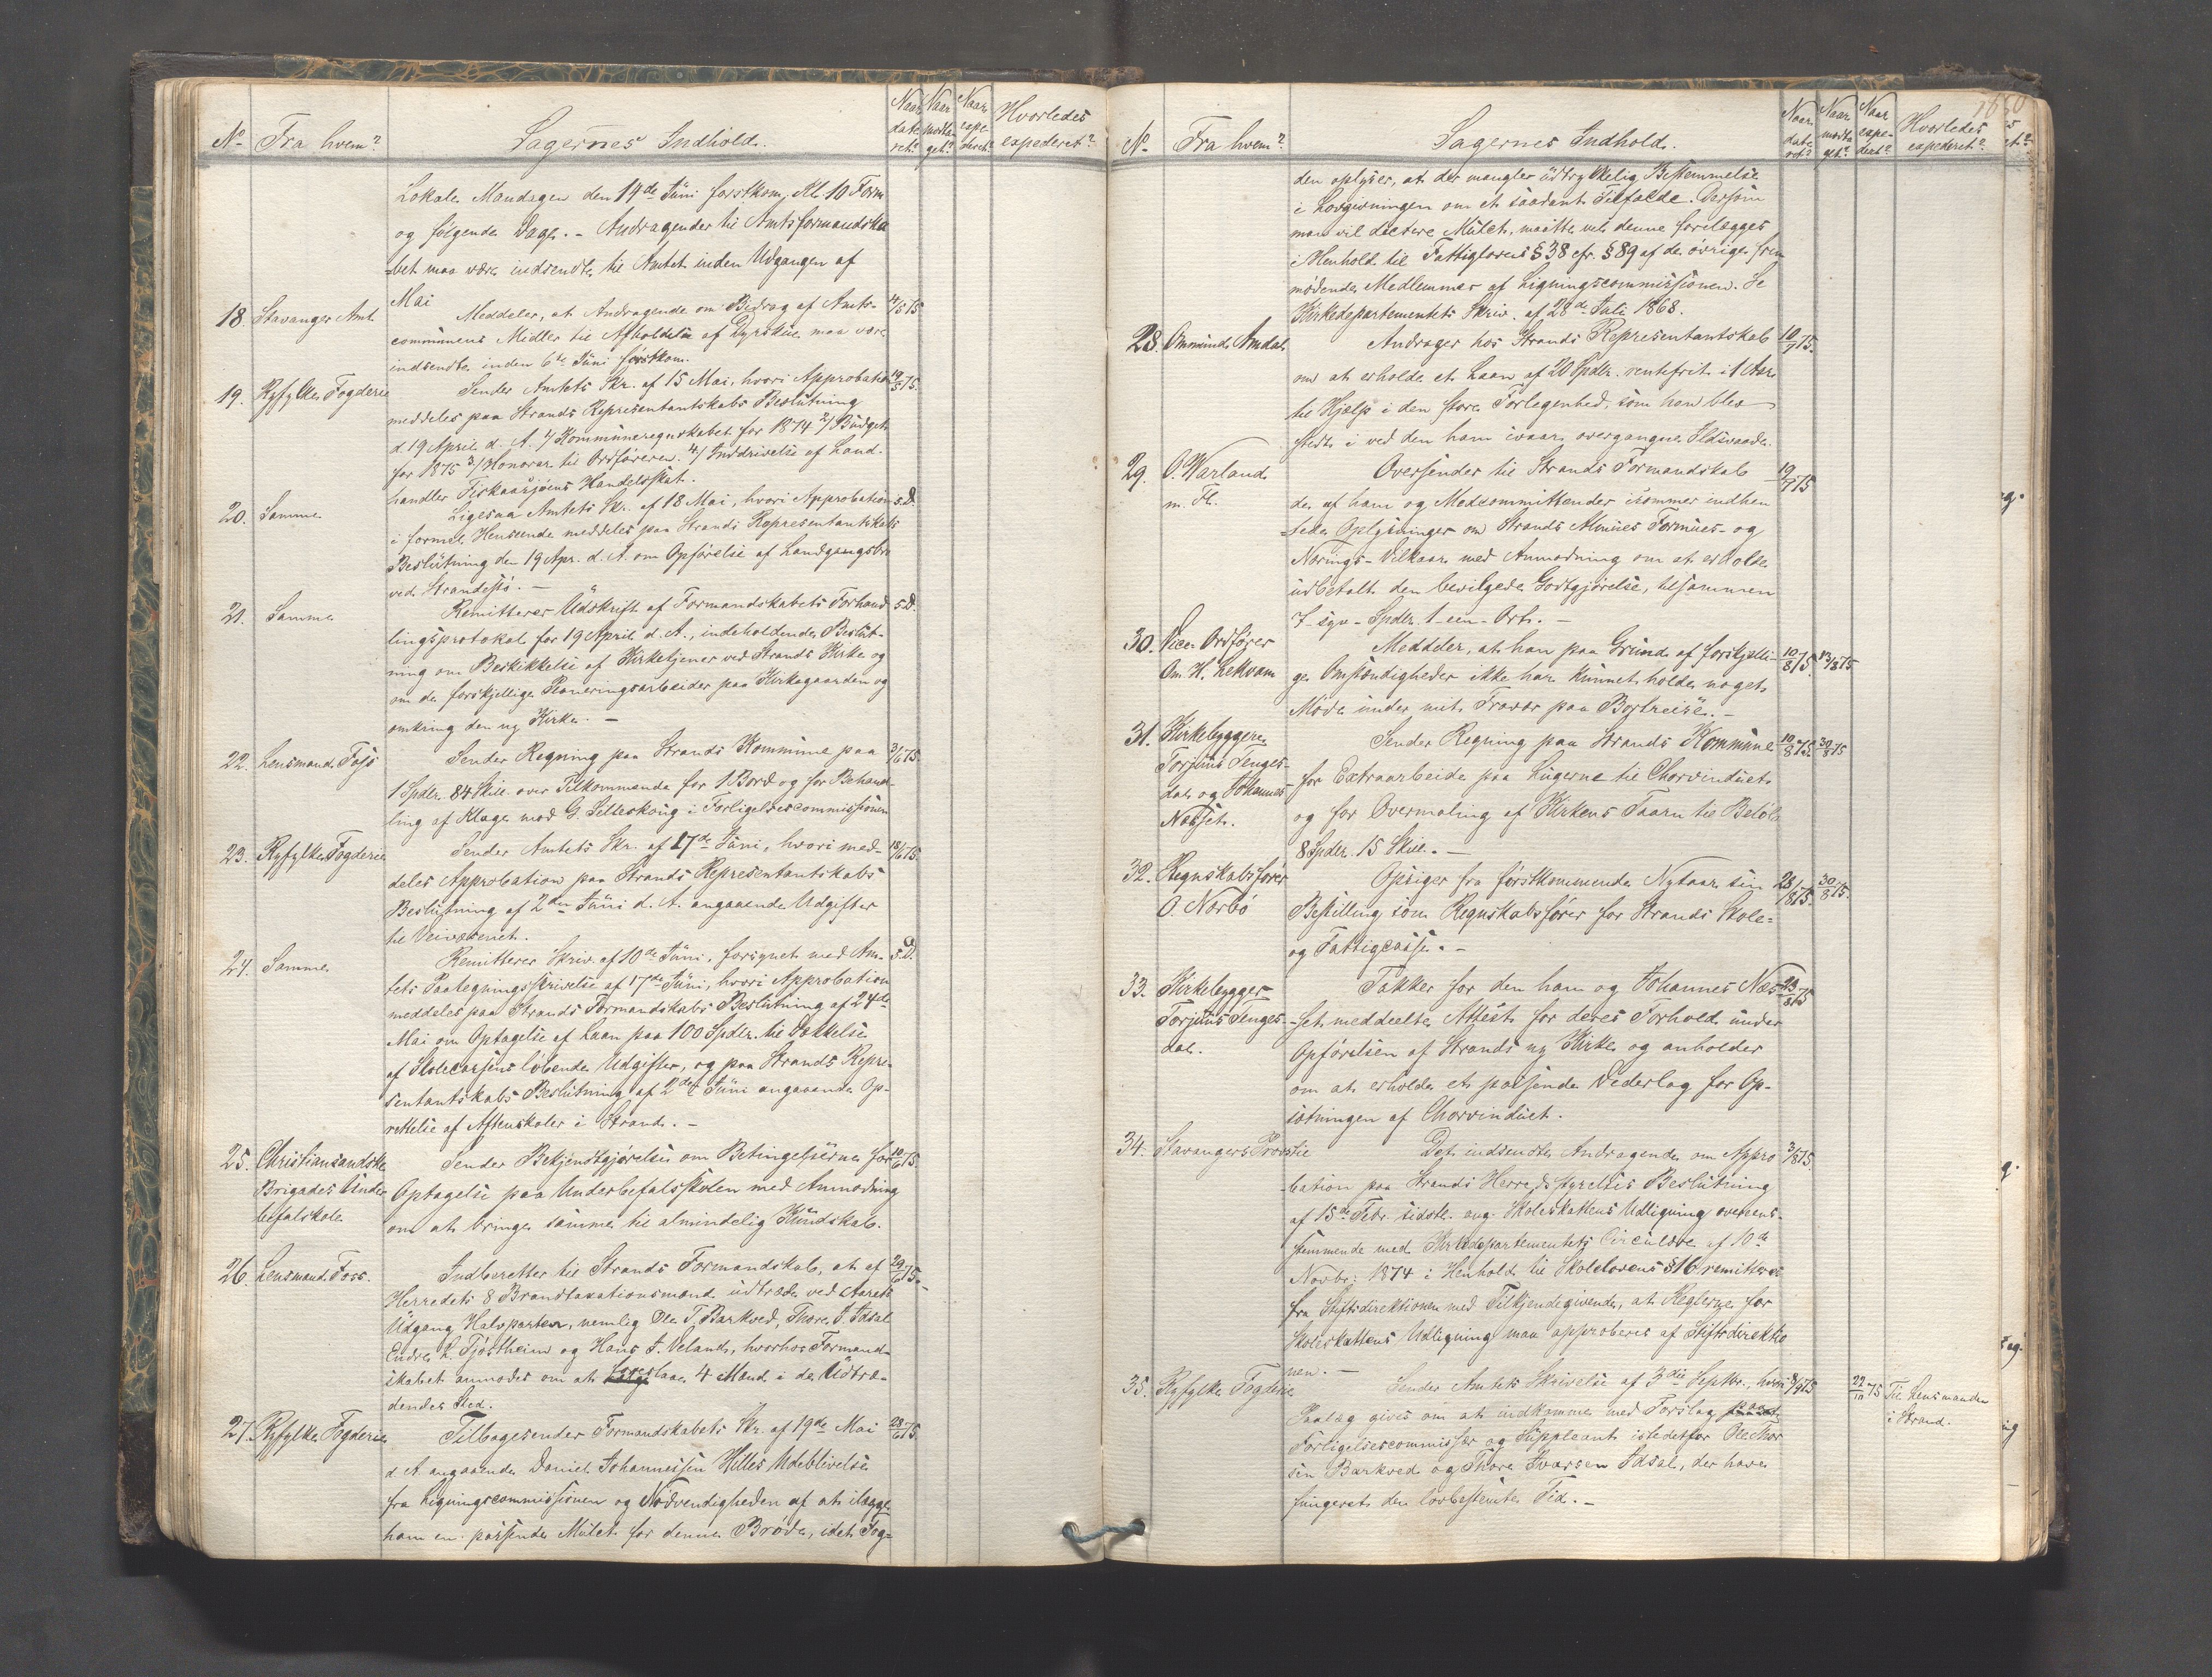 No Fra hvem? Sagernes Indhold. Naar dateret? Naar modtaget? Naar expederet? Hvorledes expederet?
Lokale Mandagen den 14de Juni førstkom. Kl. 10 Form
og følgende Dage. - Andragender til Amtsformandska
-bet maa være indsendte til Amtet inden Udgangen af
Mai
18. Stavanger Amt. Meddeler, at Andragende om Bidrag af Amts- 4/5 75
communens Midler til Afholdelse af Dyrskue maa være
indsendte inden 6te Juni førstkom.
19. Ryfylke Fogderie Sender Amtets Skr. af 15 Mai, hvori Approbation 19/5 75.
meddeles paa Strands Repræsentantskabs Beslutning
d. 19 April d. A. 1/ Kommuneregnskabet for 1874 2/ Budget
for 1875 3/ Honorar til Ordføreren. 4/ Inddrivelse af Land-
handler Fiskaasjøens Handelsskat.
20. Samme Ligesaa Amtets Skr. af 18 Mai, hvori Approbation s.D.
i formel Henseende meddeles paa Strands Repræsentantskabs
Beslutning den 19 Apr. d. A. om Opførelse af Landgangsbro
ved Strandesjø. -
21. Samme Remitterer Udskrift af Formandskabets Forhand s.D.
lingsprotokol for 19 April d. A., indeholdende Beslut-
ning om Beskikkelse af Kirketjener ved Strands Kirke og
om de forskjellige Planeringsarbeider paa Kirkegaarden og
omkring den ny Kirke. -
22. Lensmand Foss Sender Regning paa Strands Kommune paa 3/6 75.
1 Spdlr. 84 Skill. over Tilkommende for 1 Bord og for Behand-
ling af Klage mod G. Selleskoug i Forligelsescommissionen
23. Ryfylke Fogderie Sender Amtets Skr. af 17de Juni, hvori med- 18/6 75.
deles Approbation paa Strands Repræsentantskabs
Beslutning af 2den Juni d. A. angaaende Udgifter
til Veivæsenet.
24. Samme Remitterer Skriv. af 10de Juni, forsynet med Am- s.D.
tets Paategningsskrivelse af 17de Juni, hvori Approbation
meddeles paa Strands Formandskabs Beslutning af 24de
Mai om Optagelse af Laan paa 100 Spdlr. til Dækkelse
af Skolecassens løbende Udgifter, og paa Strands Repræ-
sentantskabs Beslutning af 2den Juni angaaende Op-
rettelse af Aftenskoler i Strand. -
25. Christiansandske Sender Bekjendtgjørelse om Betingelserne for 10/6 75
Brigades Under Optagelse paa Underbefalsskolen med Anmodning
befalskole om at bringe samme til almindelig Kundskab.
26. Lensmand Foss. Indberetter til Strands Formandskab, at af 29/6 75.
Herredets 8 Brandtaxationsmænd udtræde ved Aarets
Udgang Halvparten, nemlig Ole T. Barkved, Thore I. Idsal
Endre L. Tjøstheim og Hans J. Veland, hvorhos Formand-
skabet anmodes om at foreslaae 4 Mænd i de Udtræ-
dendes Sted.
27. Ryfylke Fogderie Tilbagesender Formandskabets Skr. af 19de Mai 28/6 75.
d. A. angaaende Daniel Johannessen Hilles Udeblivelse
fra Ligningscommissionen og Nødvendigheden af at ilægge
ham en passende Mulct for denne Brøde, idet Fog-
No Fra hvem? Sagernes Indhold. Naar dateret? Naar modtaget? Naar expederet? Hvorledes expederet?
den oplyser, at der mangler udtrykkelig Bestemmelse
i Lovgivningen om et saadant Tilfælde. Dersom
man vil dictere Mulct, maatte vel denne forelægges
i Henhold til Fattiglovens § 38 cfr. § 89 af de øvrige frem
mødende Medlemmer af Ligningscommissionen. Se
Kirkedepartementets Skriv. af 28de Juli 1868.
28. Ommund Amdal Andrager hos Strands Repræsentantskab 10/7 75.
om at erholde et Laan af 20 Spdlr. rentefrit i 1 Aar
til Hjælp i den store Forlegenhed, som han blev
stedt i ved den ham ivaar overgangne Ildsvaade.
29. O. Warland Oversender til Strands Formandskab 19/7 75
m. Fl. de af ham og Medcommitterede isommer indhen
-tede Oplysninger om Strands Almues Formues- og
Nærings-Vilkaar med Anmodning om at erholde
udbetalt den bevilgede Godtgjørelse, tilsammen
7-syv-Spdlr. 1-een-Ort. -
30. Vice Ordfører Meddeler, at han paa Grund af forskjelli- 10/8 75. 13/8 75
Om. H. Lekvam ge Omstændigheder ikke har kunnet holde noget
Møde under mit Fravær paa Bortreise. -
31. Kirkebyggere Sender Regning paa Strands Kommune 10/8 75. 30/8 75
Torjuus Tenges- for Extraarbeide paa Lugerne til Chorvinduet
dal og Johannes og for Overmaling af Kirkens Taarn til Beløb
Næsset. 8 Spdlr. 15 Skill. -
32. Regnskabsfører Opsiger fra førstkommende Nytaar sin 28/8 75. 30/8 75.
O. Norbø Bestilling som Regnskabsfører for Strands Skole-
og Fattigcasse. -
33. Kirkebygger Takker for den ham og Johannes Næs- 23/8 75
Torjuus Tenges- -set meddeelte Attest for deres Forhold under
dal. Opførelsen af Strands ny Kirke og anholder
om at erholde et passende Vederlag for Op-
sætningen af Chorvinduet.
34. Stavangers Provstie Det indsendte Andragende om Appro 3/8 75.
-bation paa Strands Herredsstyrelses Beslutning
af 15de Febr. sidstl. ang. Skoleskattens Udligning overens-
stemmende med Kirkedepartementets Circulære af 10de
Novbr. 1874 i Henhold til Skolelovens § 16 remitteres
fra Stiftsdirektionen med Tilkjendegivende, at Reglerne for
Skoleskattens Udligning maa approberes af Stiftsdirektio
nen. -
35. Ryfylke Fogderie Sender Amtets Skrivelse af 3die Septbr., hvori 8/9 75 22/10 75 Til Lensmanden
Paalæg gives om at indkomme med Forslag paa i Strand.
Forligelsescommissær og Suppleant istedetfor Ole Thor
sen Barkved og Thore Ivarsen Idsal, der have
fungeret den lovbestemte Tid. -